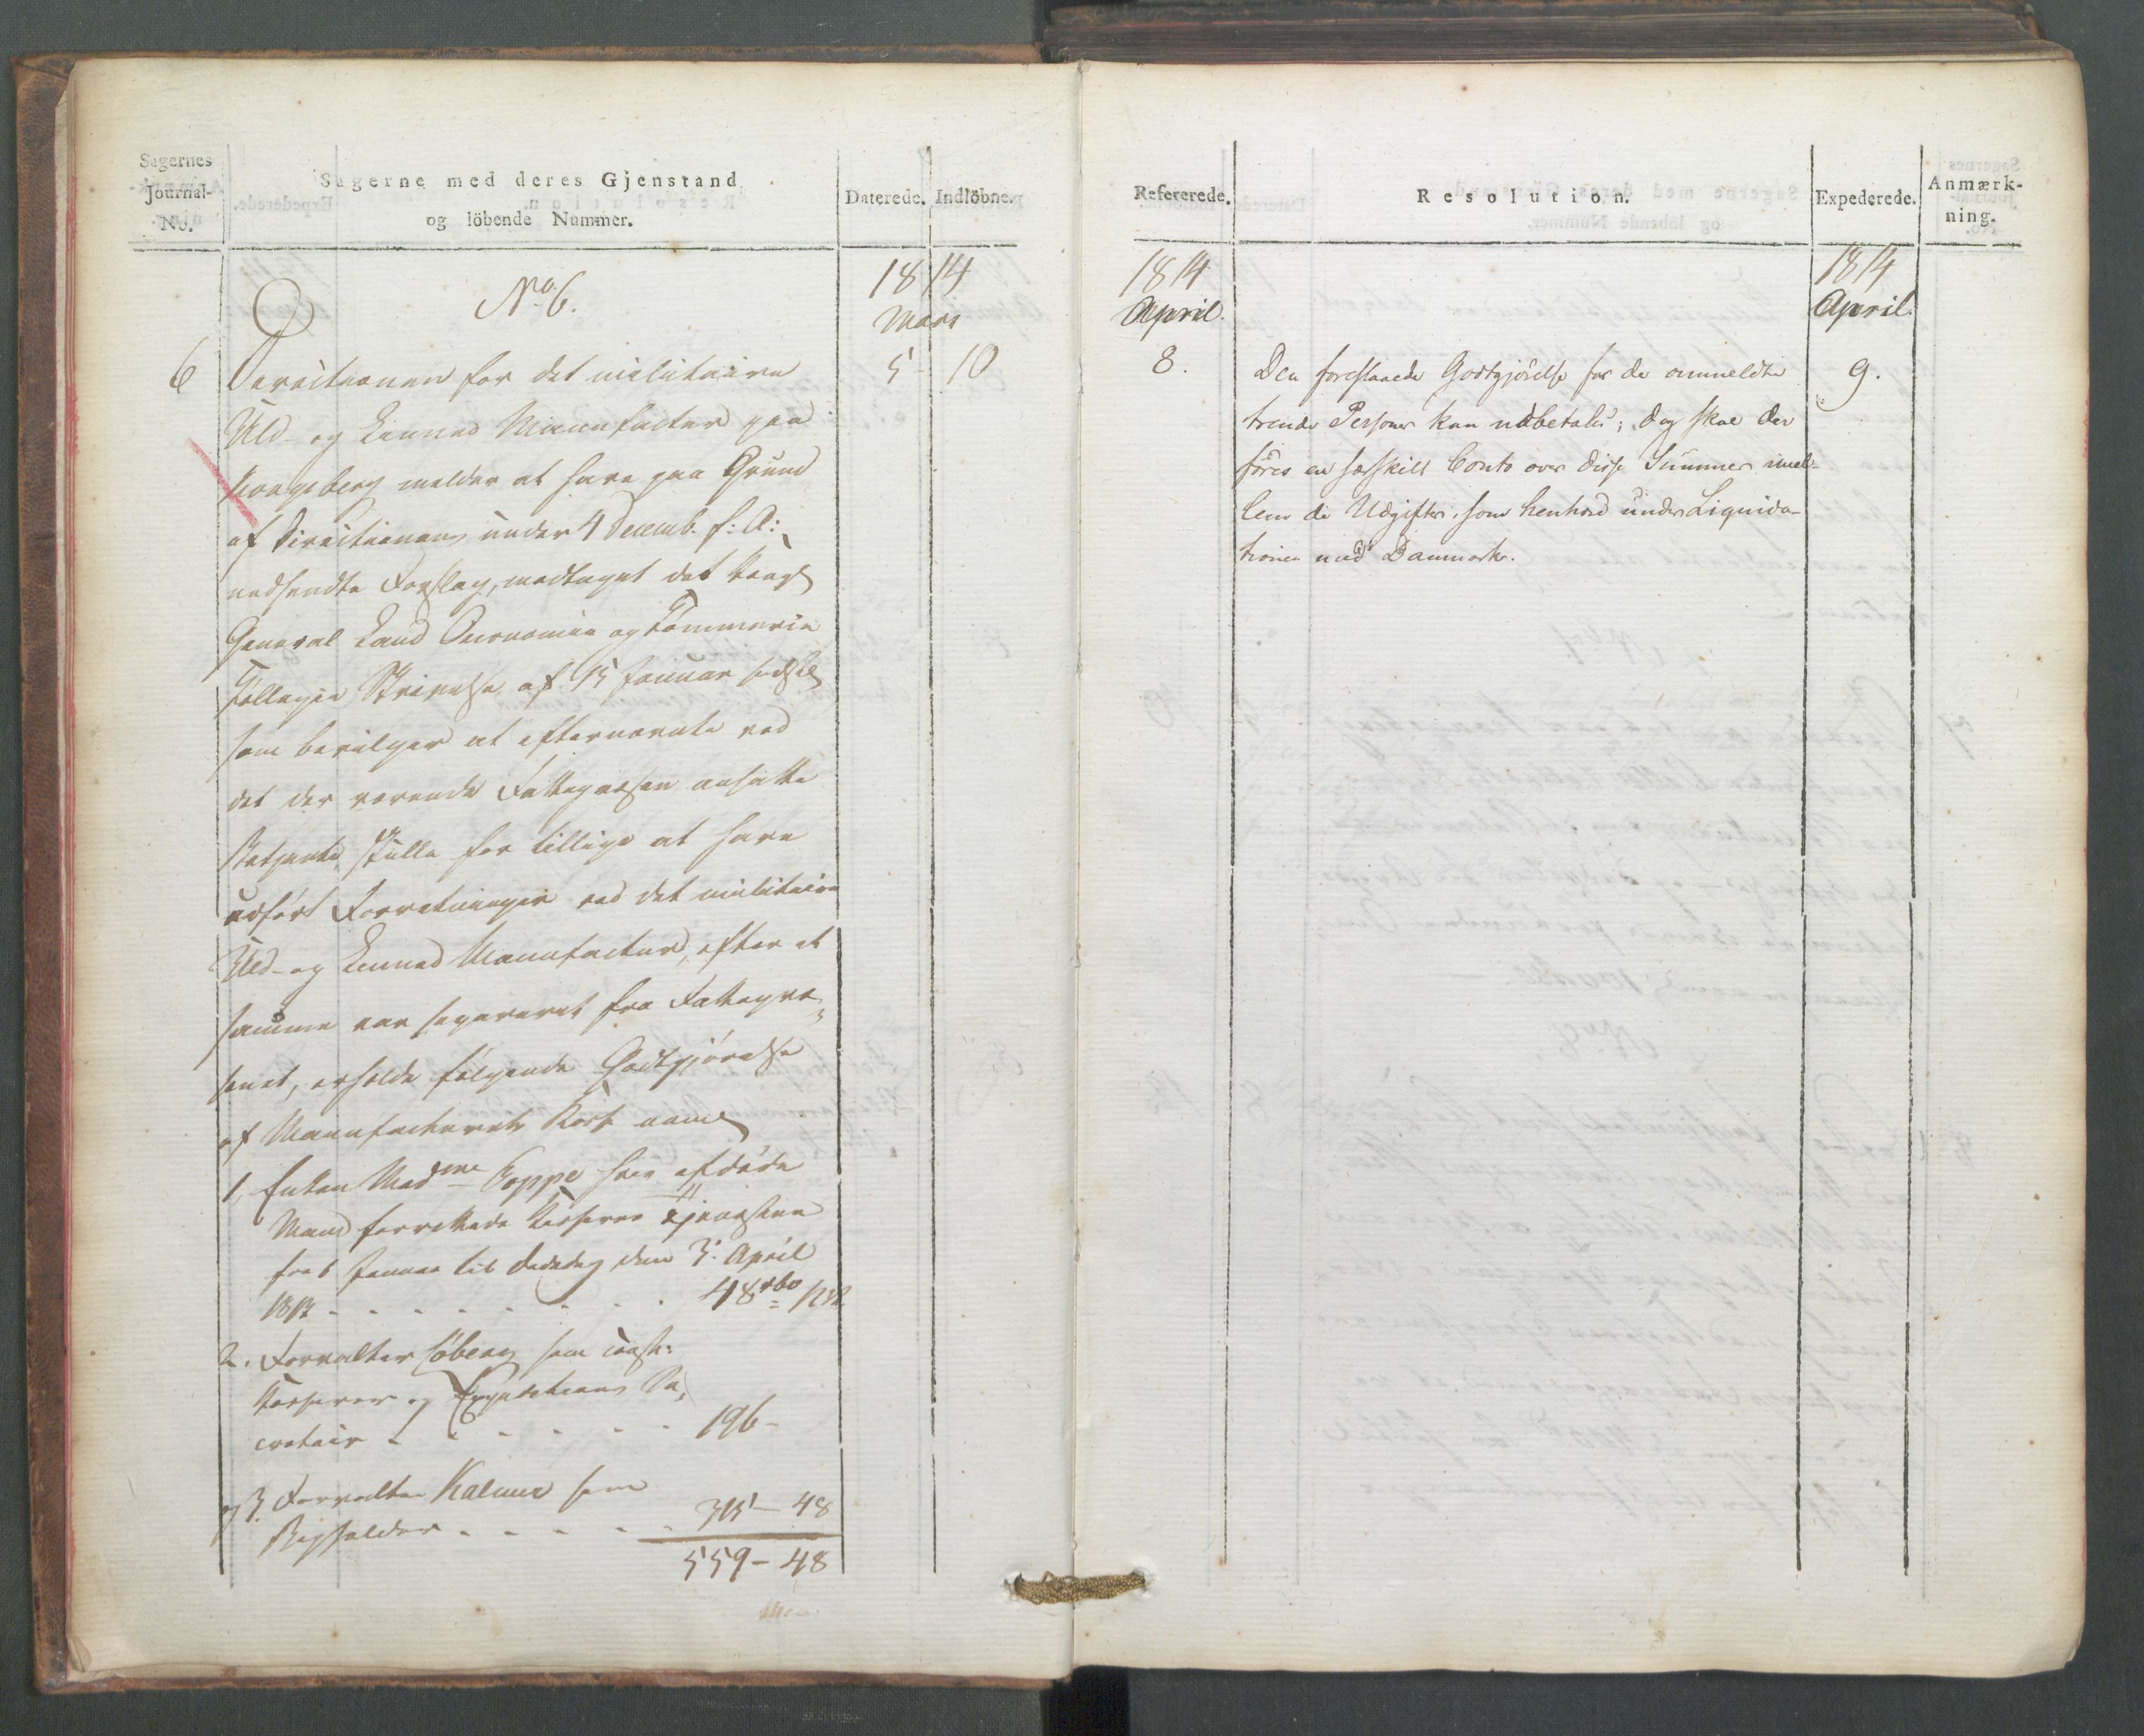 Sagernes
Journal-
No.
Sagerne med deres Gjenstand
og löbende Nummer.
Daterede.
Indlöbne.
No. 6.
1814
Mars
6
5
10
Directionen for det militaire
Uld- og Linned Manufactur paa
Kongsberg melder at have paa Grund
af Directionens under 4 Decemb. f: A:
nedsendte Forslag, modtaget det Kongl
General Land Oeconomie og Commerce
Collegii Skrivelse af 15 Januar sidstl
som bevilger at efternævnte ved
det der værende Fattigvæsen ansatte
Betjente skulle for tillige at have
udført Forretninger ved det militaire
Uld- og Linned Manufactur, efter at
samme var separeret fra Fattigvæ-
senet, erholde følgende Godtgjørelse
af Manufacturets Kasse nemlig
1, Enken Madme Koppe hvis afdøde
Mand forrettede Kasserer Tjenesten
fra 1 Januar til Dødsdag den 3. April
1813 - - - - - - - 48 rbd
2. Forvalter Söberg som const:
Kasserer og Expeditions Se-
cretair - - - - - - 196 -
og 3. Forvalter Kalmer som
Bogholder - - - - - 315 - 48
559 - 48
Refererede.
Resolution.
Expederede.
Anmærk-
ning.
1814
April.
1814
April.
8.
9.
Den foreslaaede Godtgjörelse for de anmeldte
trende Personer kan udbetales; dog skal der
föres en særskilt Conto over disse Summer imel-
lem de Udgifter, som henhörer under Liquida-
tionen med Danmark.